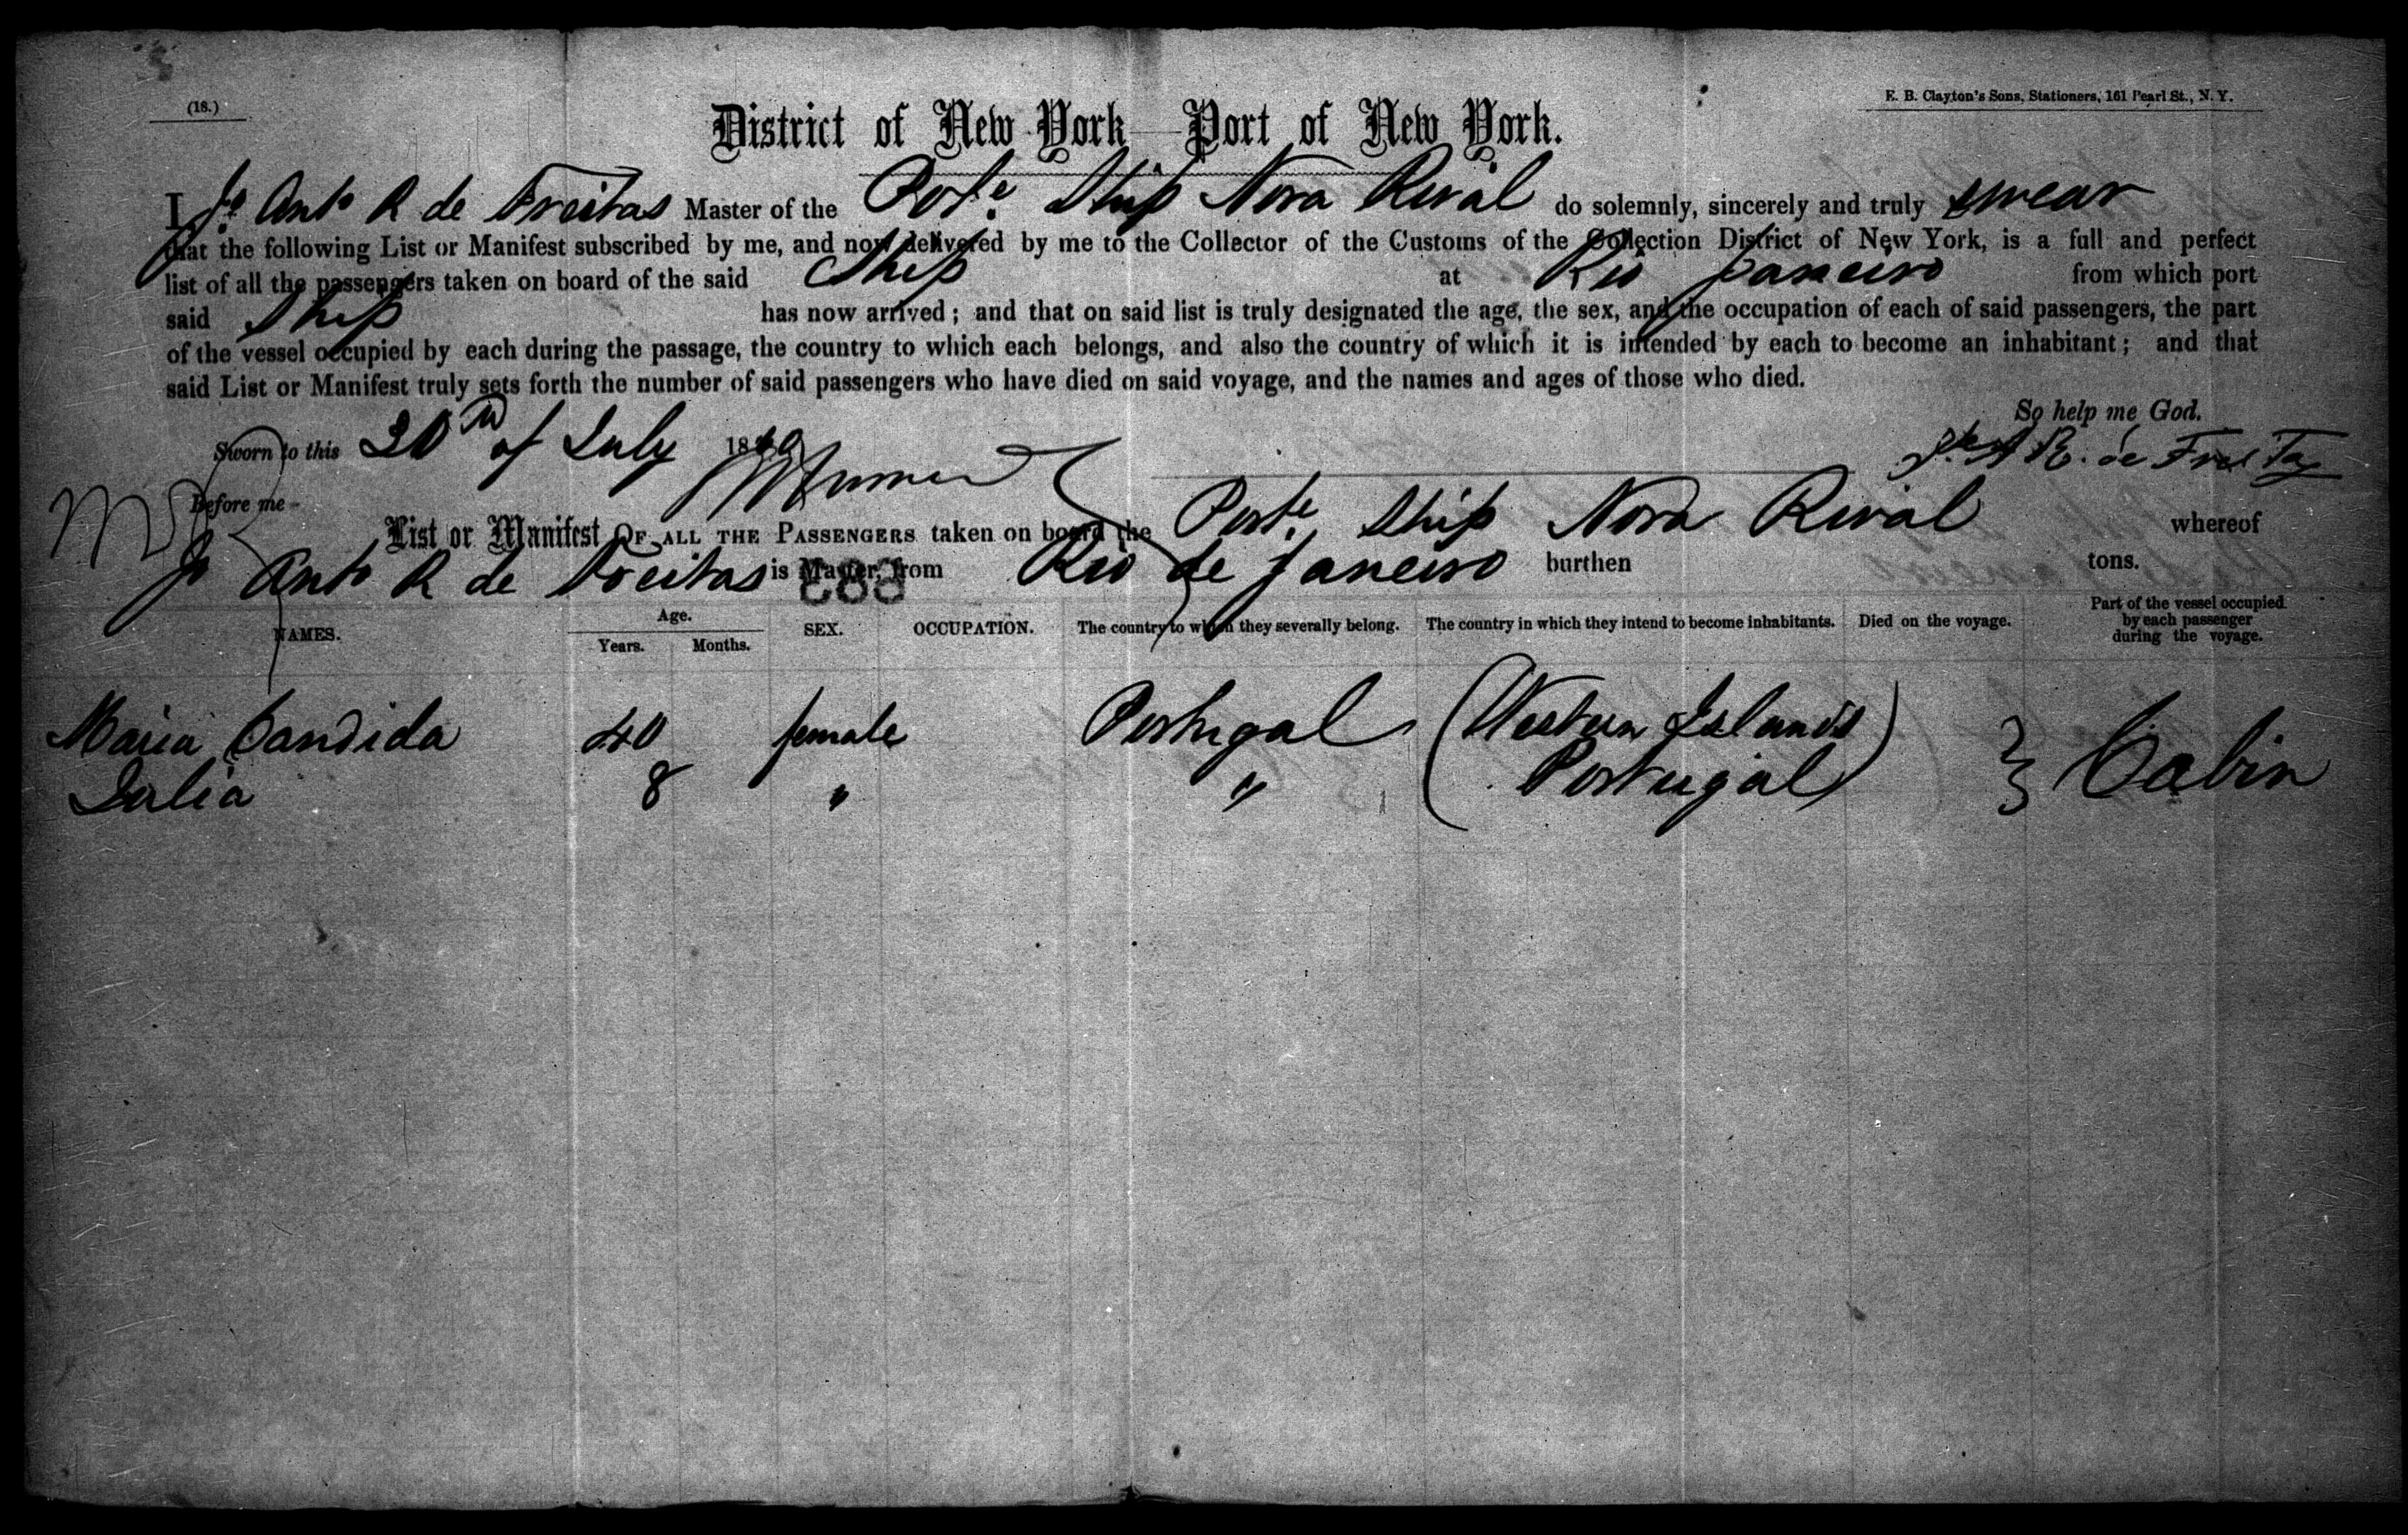 (18.)
E. B. Clayton's Sons, Stationers, 161 Pearl St., N. Y.
District of New York—Port of New York.
I, Jo Anto R de Freitas Master of the Porte. Ship Nova Rival do solemnly, sincerely and truly swear
that the following List or Manifest subscribed by me, and now delivered by me to the Collector of the Customs of the Collection District of New York, is a full and perfect
list of all the passengers taken on board of the said Ship at Rio Janeiro from which port
said Ship has now arrived; and that on said list is truly designated the age, the sex, and the occupation of each of said passengers, the part
of the vessel occupied by each during the passage, the country to which each belongs, and also the country of which it is intended by each to become an inhabitant; and that
said List or Manifest truly sets forth the number of said passengers who have died on said voyage, and the names and ages of those who died.
So help me God.
Sworn to this 20th of July 18
R. de Freitas
Before me
List or Manifest OF ALL THE PASSENGERS taken on board the Porte. Ship Nova Rival whereof
Jo Anto R de Freitas is Master, from Rio de Janeiro burthen tons.
883
NAMES. Age. Years. Months. SEX. OCCUPATION. The country to which they severally belong. The country in which they intend to become inhabitants. Died on the voyage. Part of the vessel occupied by each passenger during the voyage.
Maria Candida 40 female Portugal (Western Islands)
Julia 8 " " (Portugal) } Cabin